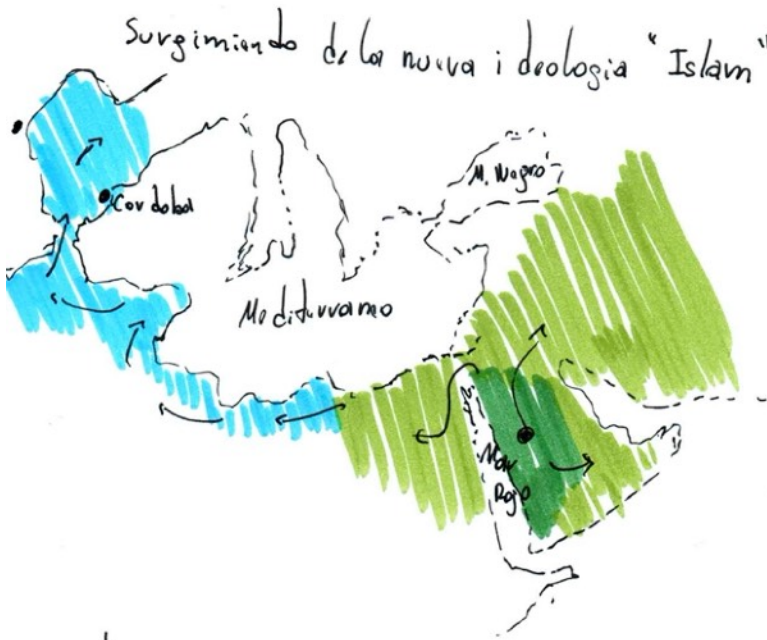 Surgimiendo de la nueva ideologia "Islam"
M. Negro
Cordoba
Mediterraneo
Mar
Rojo